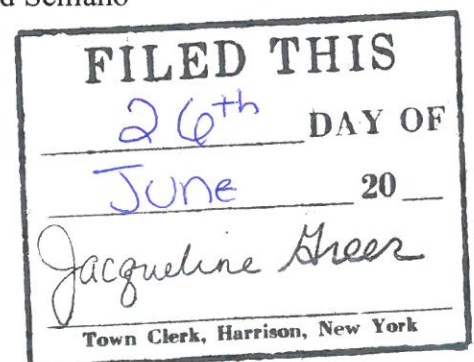 FILED THIS
26th DAY OF
June 20
Jacqueline Greer
Town Clerk, Harrison, New York